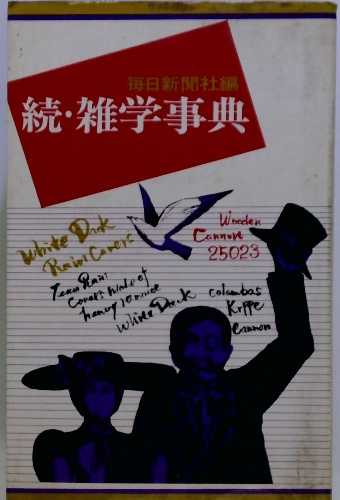 毎日新聞社編
続・雑学事典
White Duck
Rain Covers
Wooden
Cannon
25023
Team Rain
Covers made of
heavy 10 ounce
White Duck
columbas
Cannon